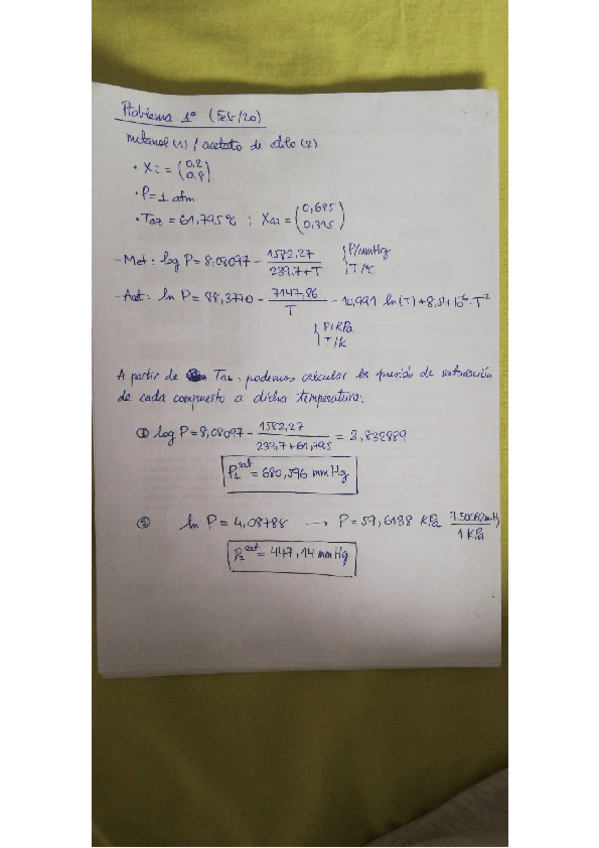 Problema 1º (Feb/20)
metanol (1) / acetato de etilo (2)
• Xi = (0,2
0,8)
• P = 1 atm
• Taz = 61,795 ºC ; Xaz = (0,685
0,315)
- Met: log P = 8,08097 - 1582,27 / (239,7+T) { P/mmHg
T/ºC
- Act: ln P = 88,3770 - 7147,86 / T - 10,991 ln(T) + 8,54·10⁻⁶·T²
{ P/KPa
T/K
A partir de Taz podemos calcular la presión de saturación
de cada compuesto a dicha temperatura:
① log P = 8,08097 - 1582,27 / (239,7+61,795) = 2,832889
P₁ˢᵃᵗ = 680,596 mmHg
② ln P = 4,08788 → P = 59,6138 KPa 7,50062 mmHg / 1 KPa
P₂ˢᵃᵗ = 447,14 mmHg